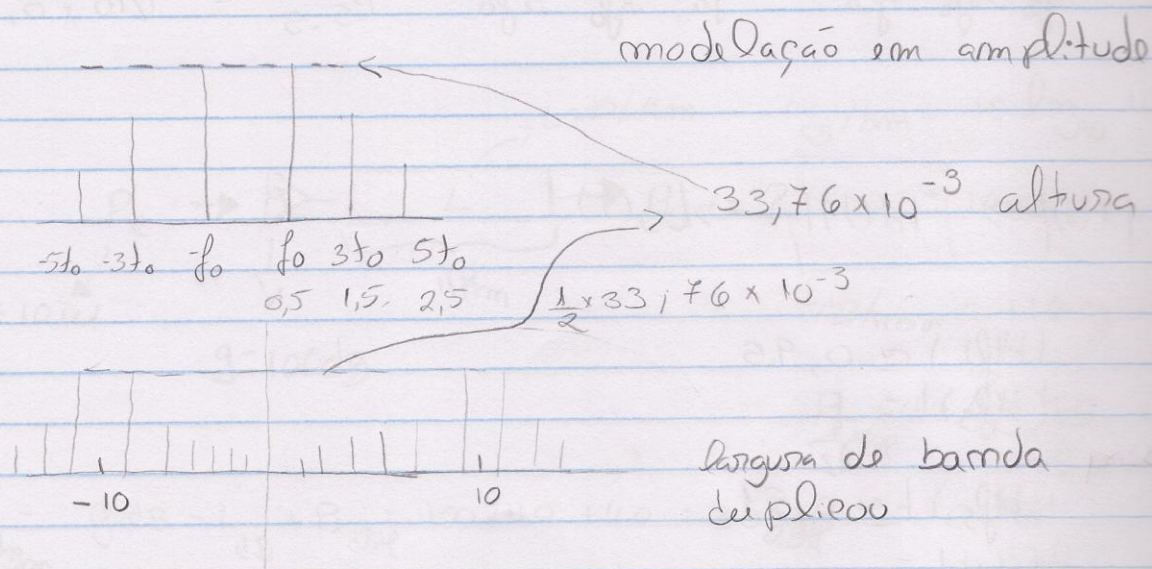 modelação em amplitude
33,76 x 10⁻³ altura
-5fo -3fo -fo fo 3fo 5fo
0,5 1,5 2,5
1/2 x 33,76 x 10⁻³
-10 10
largura de banda
duplicou